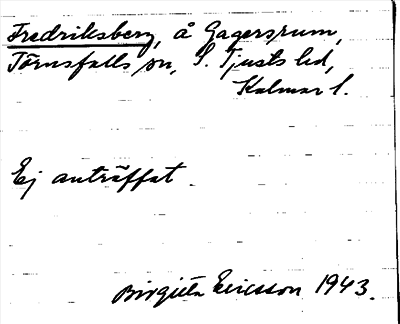 Fredriksberg, å Gagersrum,
Törnsfalls sn, S. Tjusts hd,
Kalmar l.
Ej anträffat.
Birgitta Ericsson 1943.